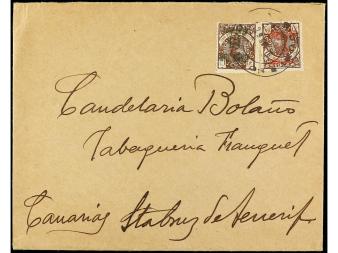 Candelaria Bolaño
Tabaqueria Franquet
Canarias Stacruz de Tenerife